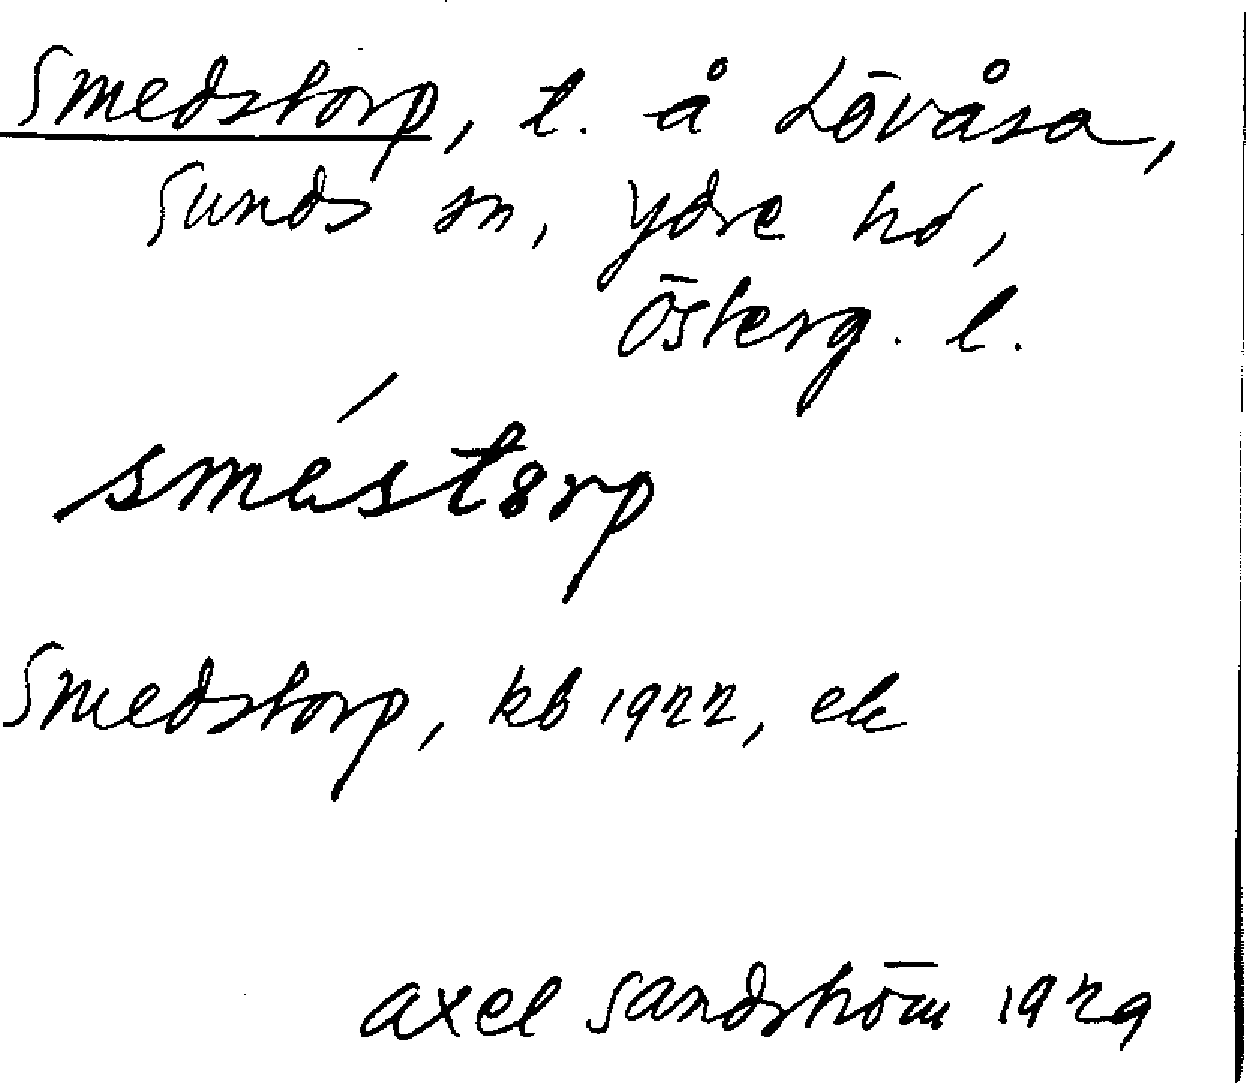 Smedstorp, t. å Lövåsa,
Sunds sn, Ydre hd,
Österg. l.
Smedstorp, kb 1922, ek
Axel Sandström 1929